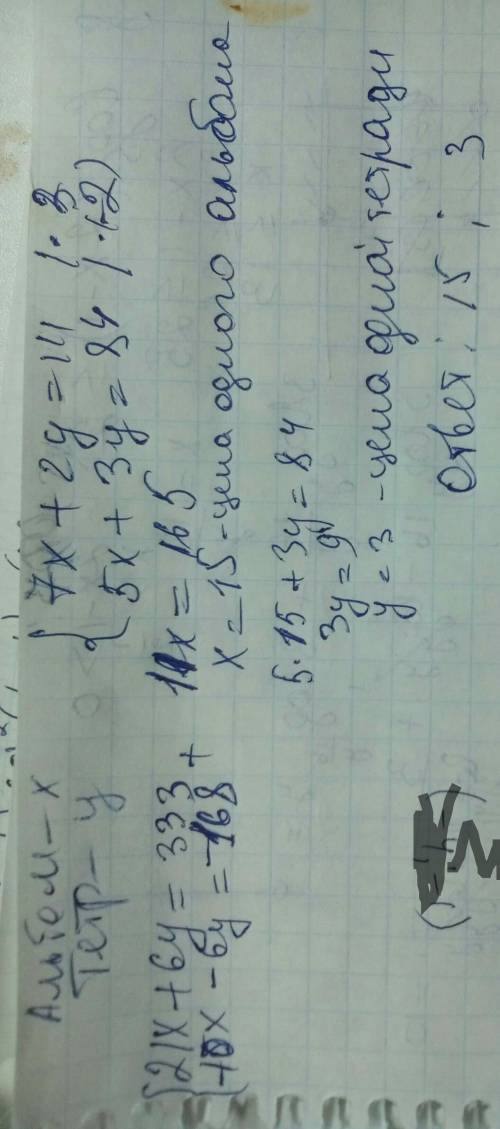 Альбом - x
Тетр - y
{ 7x + 2y = 111 | · 3
5x + 3y = 84 | · (-2)
{ 21x + 6y = 333 +
-10x - 6y = -168
11x = 165
x = 15 - цена одного альбома
5 · 15 + 3y = 84
3y = 9
y = 3 - цена одной тетради
Ответ: 15 ; 3